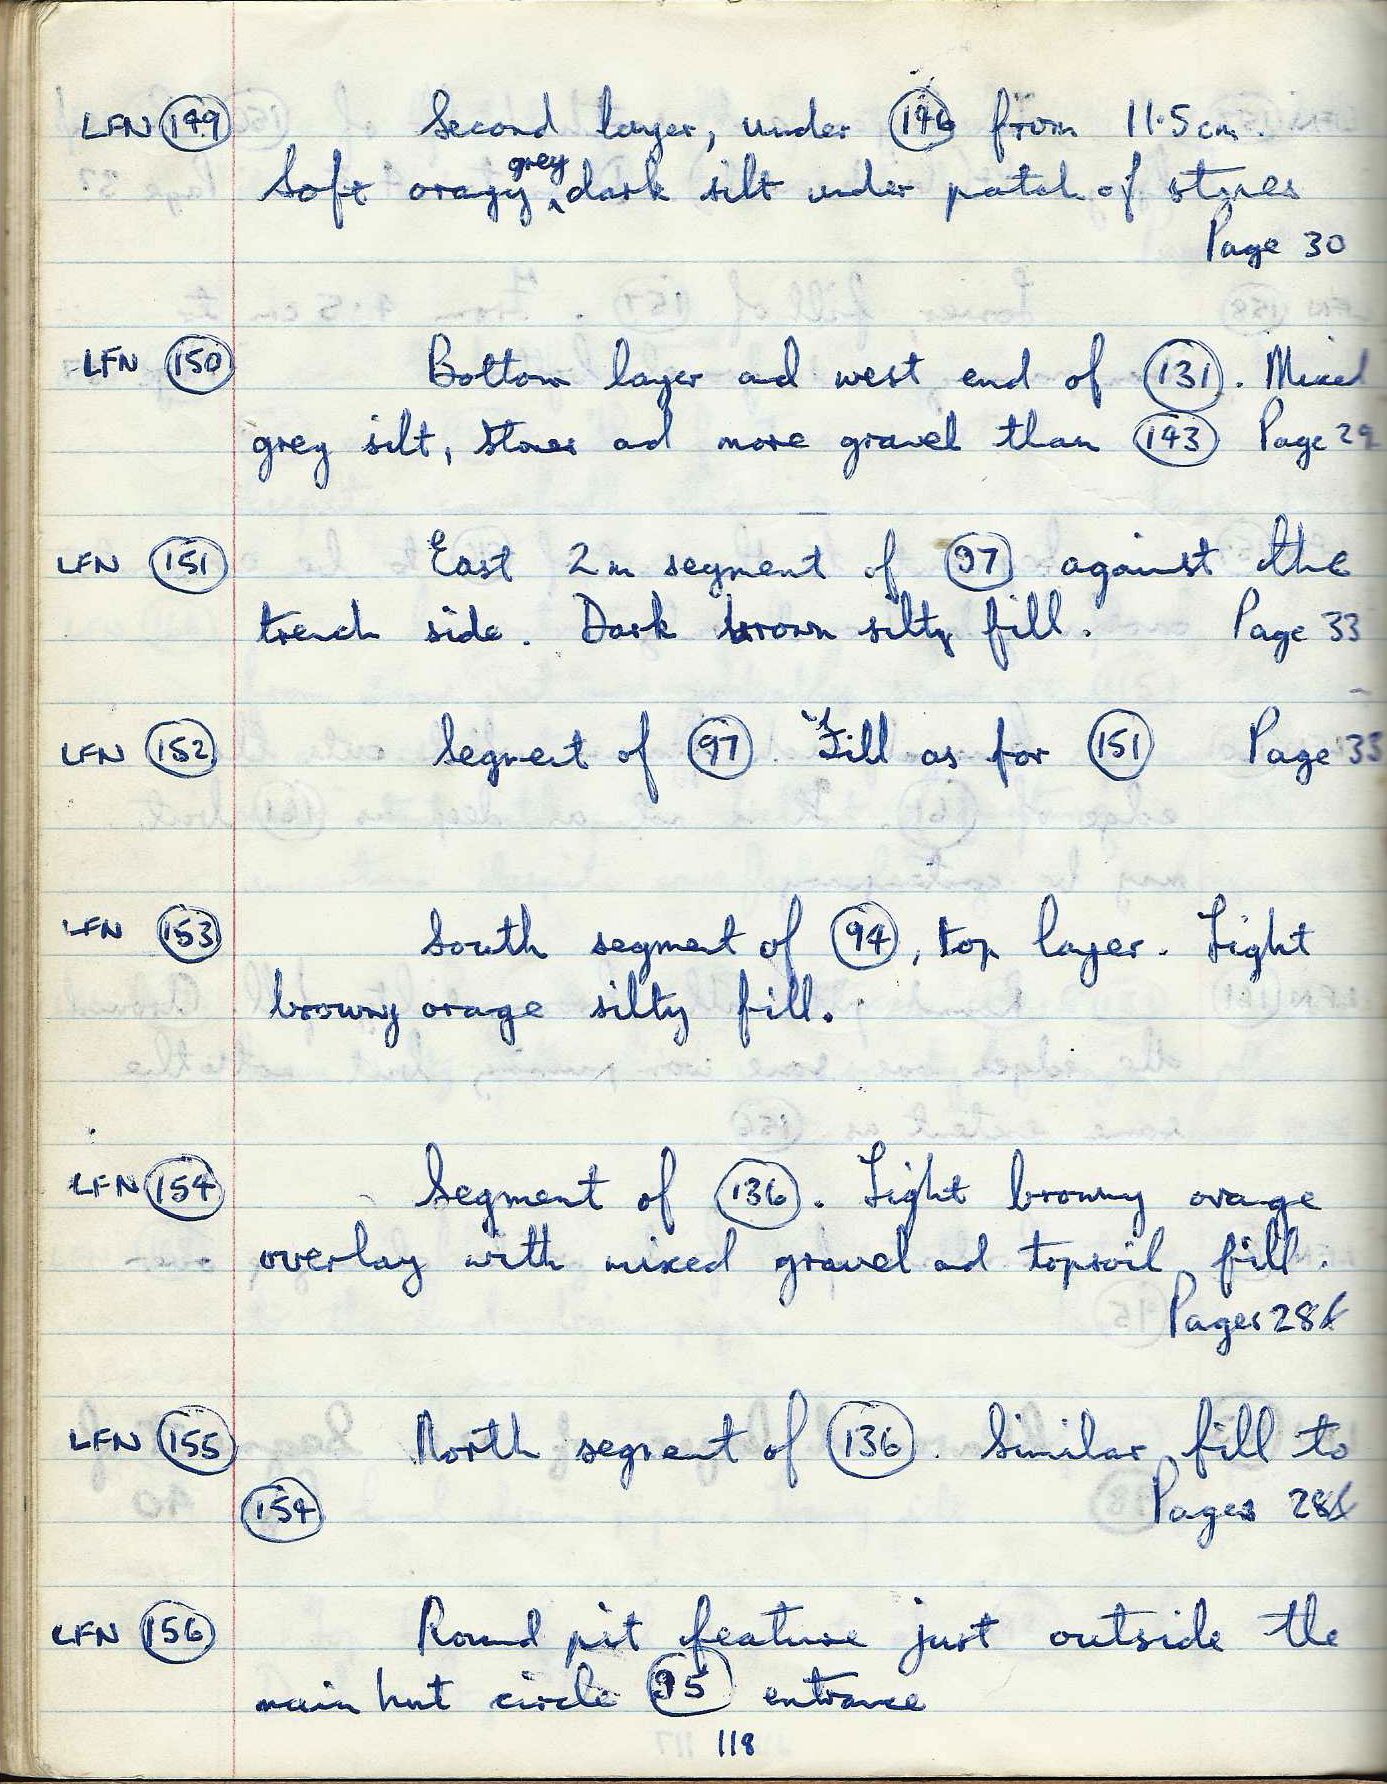 LFN 149 Second layer, under 146 from 11.5cm.
Soft oragy grey dark silt under patch of stones
Page 30
LFN 150 Bottom layer and west end of 131. Mixed
grey silt, stones and more gravel than 143 Page 29
LFN 151 East 2m segment of 97 against the
trench side. Dark brown silty fill. Page 33
LFN 152 Segment of 97. Fill as for 151 Page 33
LFN 153 South segment of 94, top layer. Light
browny orage silty fill.
LFN 154 Segment of 136. Light browny orage
overlay with mixed gravel and topsoil fill.
Pages 28
LFN 155 North segment of 136. Similar fill to
154 Pages 28
LFN 156 Round pit feature just outside the
main hut circle 95 entrance
118